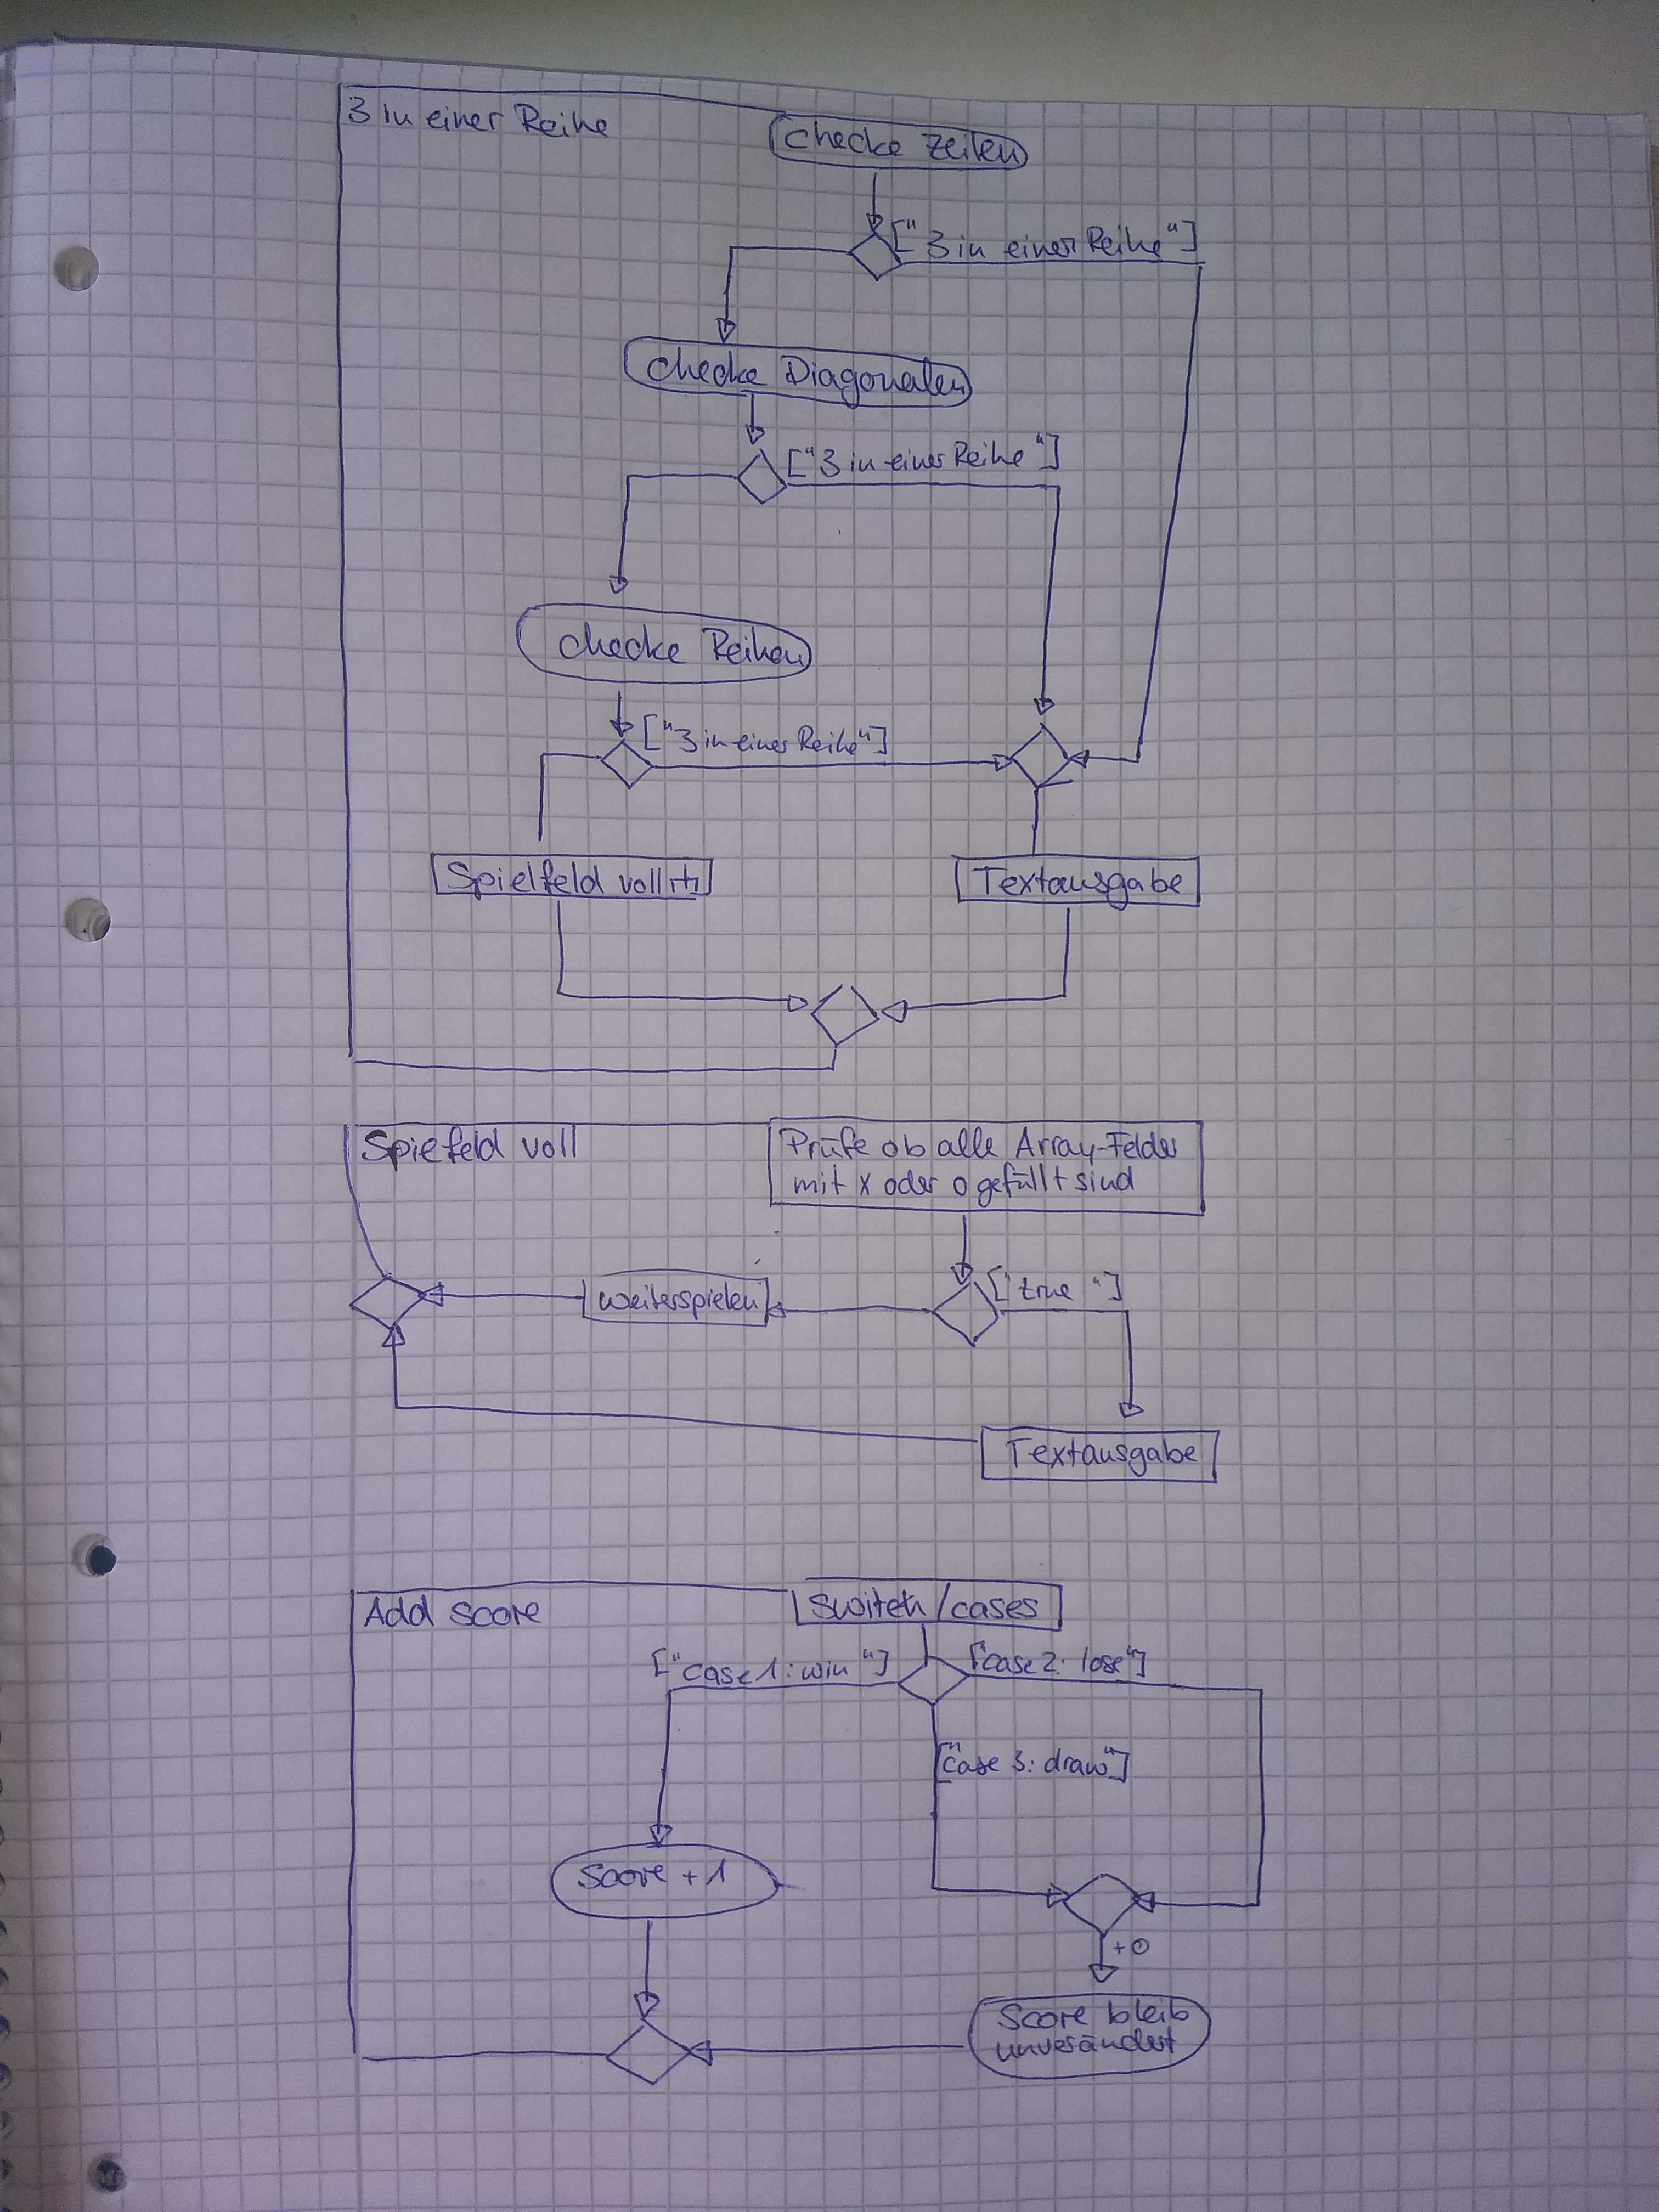 3 in einer Reihe
checke Zeilen
["3 in einer Reihe"]
checke Diagonalen
["3 in einer Reihe"]
checke Reihen
["3 in einer Reihe"]
Spielfeld voll
Textausgabe
Spielfeld voll
Prüfe ob alle Array-Felder
mit x oder o gefüllt sind
["true"]
weiterspielen
Textausgabe
Add score
switch/cases
["case 1: win"]
["case 2: lose"]
["case 3: draw"]
Score +1
+0
Score bleib
unverändert